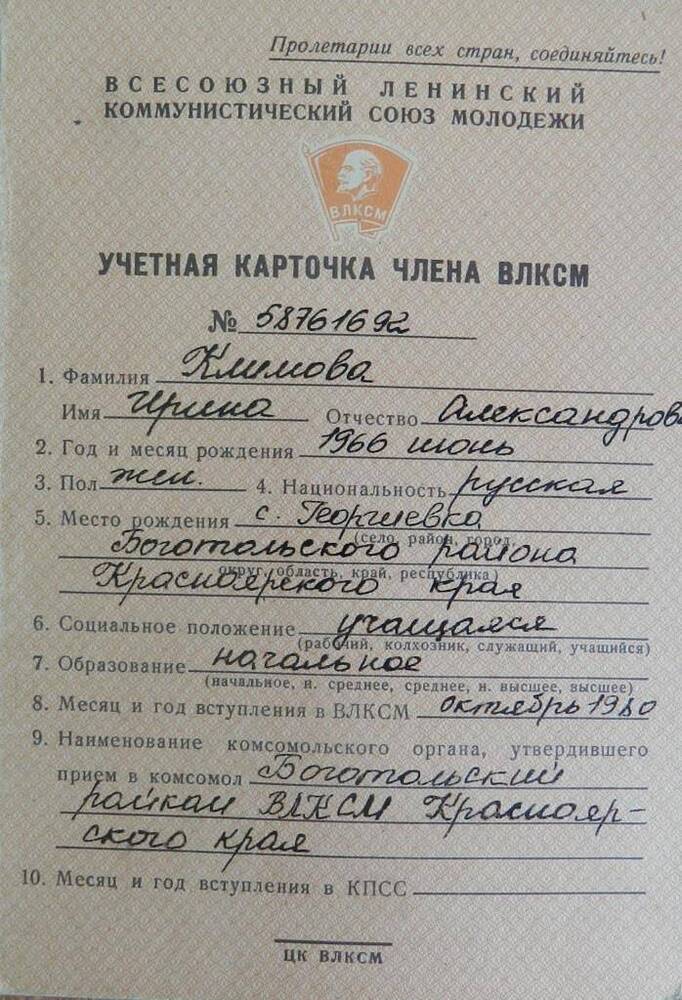 Пролетарии всех стран, соединяйтесь!
ВСЕСОЮЗНЫЙ ЛЕНИНСКИЙ
КОММУНИСТИЧЕСКИЙ СОЮЗ МОЛОДЕЖИ
ВЛКСМ
УЧЕТНАЯ КАРТОЧКА ЧЛЕНА ВЛКСМ
№ 58761692
1. Фамилия Климова
Имя Ирина Отчество Александров
2. Год и месяц рождения 1966 июнь
3. Пол жен. 4. Национальность русская
5. Место рождения с. Георгиевка
(село, район, город,
Боготольского района
округ, область, край, республика)
Красноярского края
6. Социальное положение учащаяся
(рабочий, колхозник, служащий, учащийся)
7. Образование начальное
(начальное, н. среднее, среднее, н. высшее, высшее)
8. Месяц и год вступления в ВЛКСМ октябрь 1980
9. Наименование комсомольского органа, утвердившего
прием в комсомол Боготольский
райком ВЛКСМ Краснояр-
ского края
10. Месяц и год вступления в КПСС
ЦК ВЛКСМ